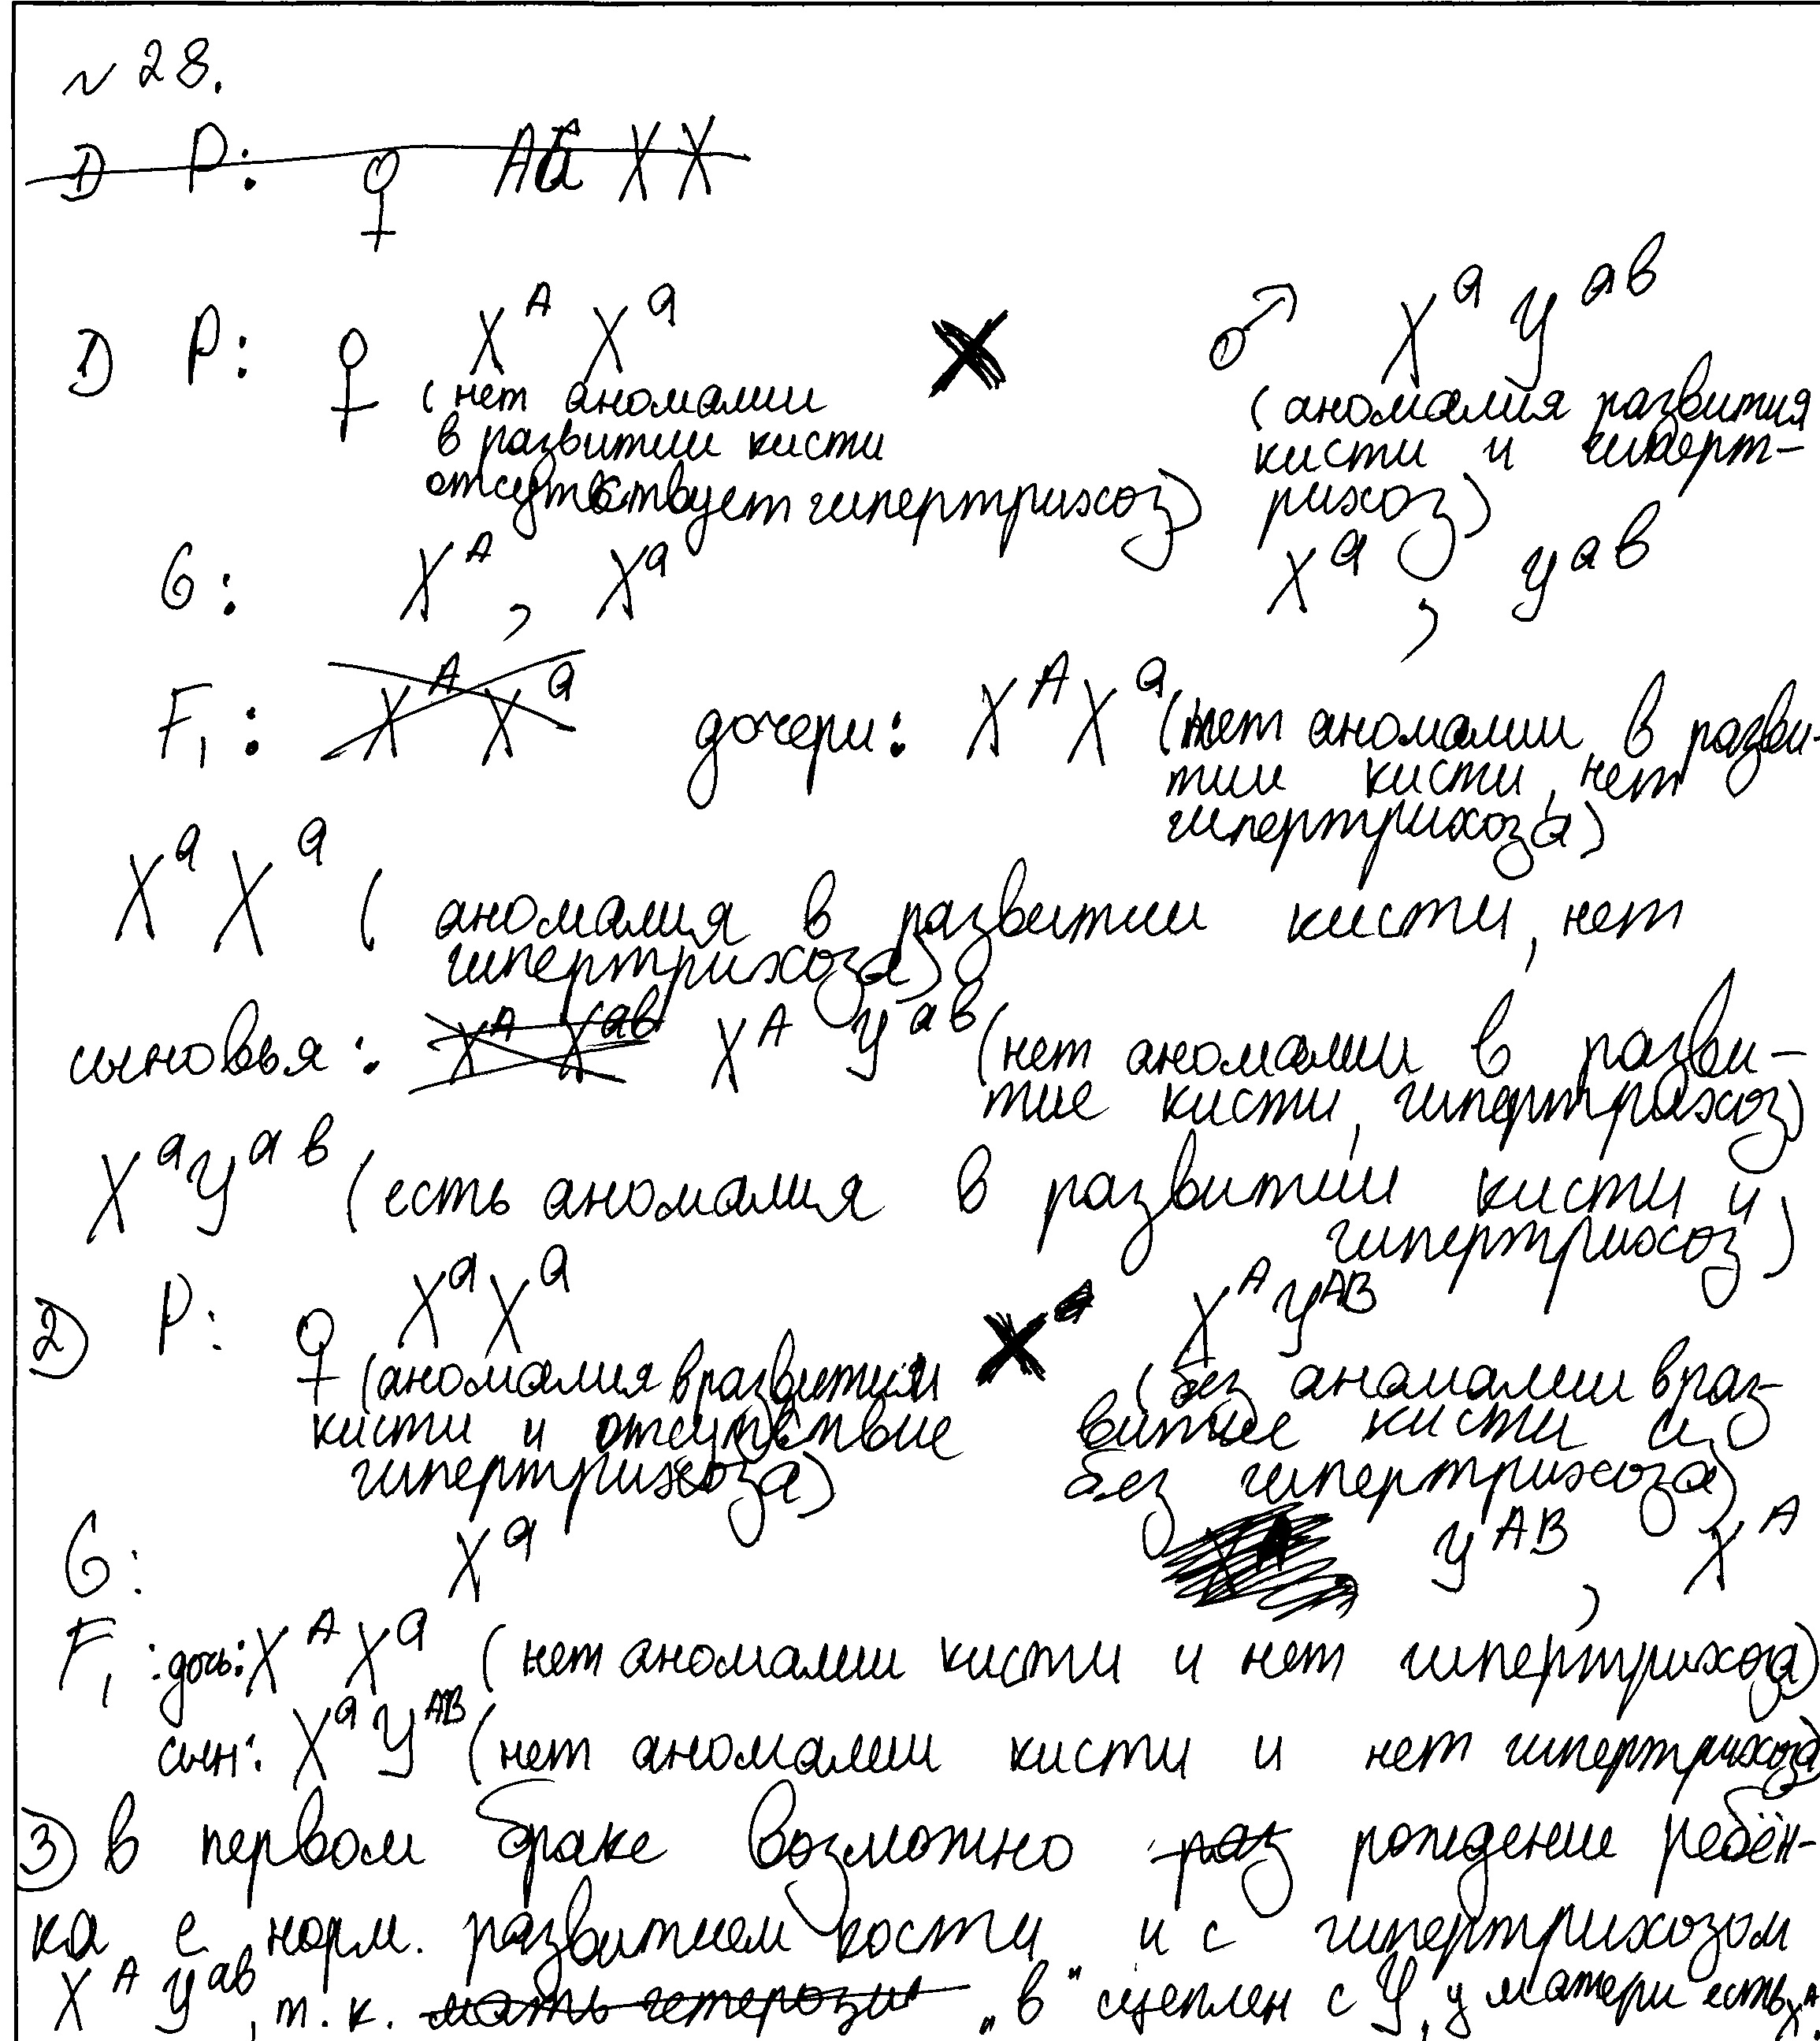 № 28.
1) P: ♀ X^A X^a × ♂ X^a Y^ab
(нет аномалии
в развитии кисти
отсутствует гипертрихоз)
(аномалия развития
кисти и гиперт-
рихоз)
G: X^A, X^a X^a, Y^ab
F₁: дочери: X^A X^a (нет аномалии в разви-
тии кисти, нет
гипертрихоза)
X^a X^a (аномалия в развитии кисти, нет
гипертрихоза)
сыновья: X^A Y^ab (нет аномалии в разви-
тие кисти, гипертрихоз)
X^a Y^ab (есть аномалия в развитии кисти и
гипертрихоз)
2) P: ♀ X^a X^a × X^A Y^AB
(аномалия в развитии
кисти и отсутствие
гипертрихоза)
(без аномалии в раз-
витие кисти и
без гипертрихоза)
G: X^a Y^AB, X^A
F₁: дочь: X^A X^a (нет аномалии кисти и нет гипертрихоза)
сын: X^a Y^AB (нет аномалии кисти и нет гипертрихоза)
3) в первом браке возможно рождение ребён-
ка с норм. развитием кости и с гипертрихозом
X^A Y^ab, т.к. „в" сцеплен с Y, у матери есть X^A